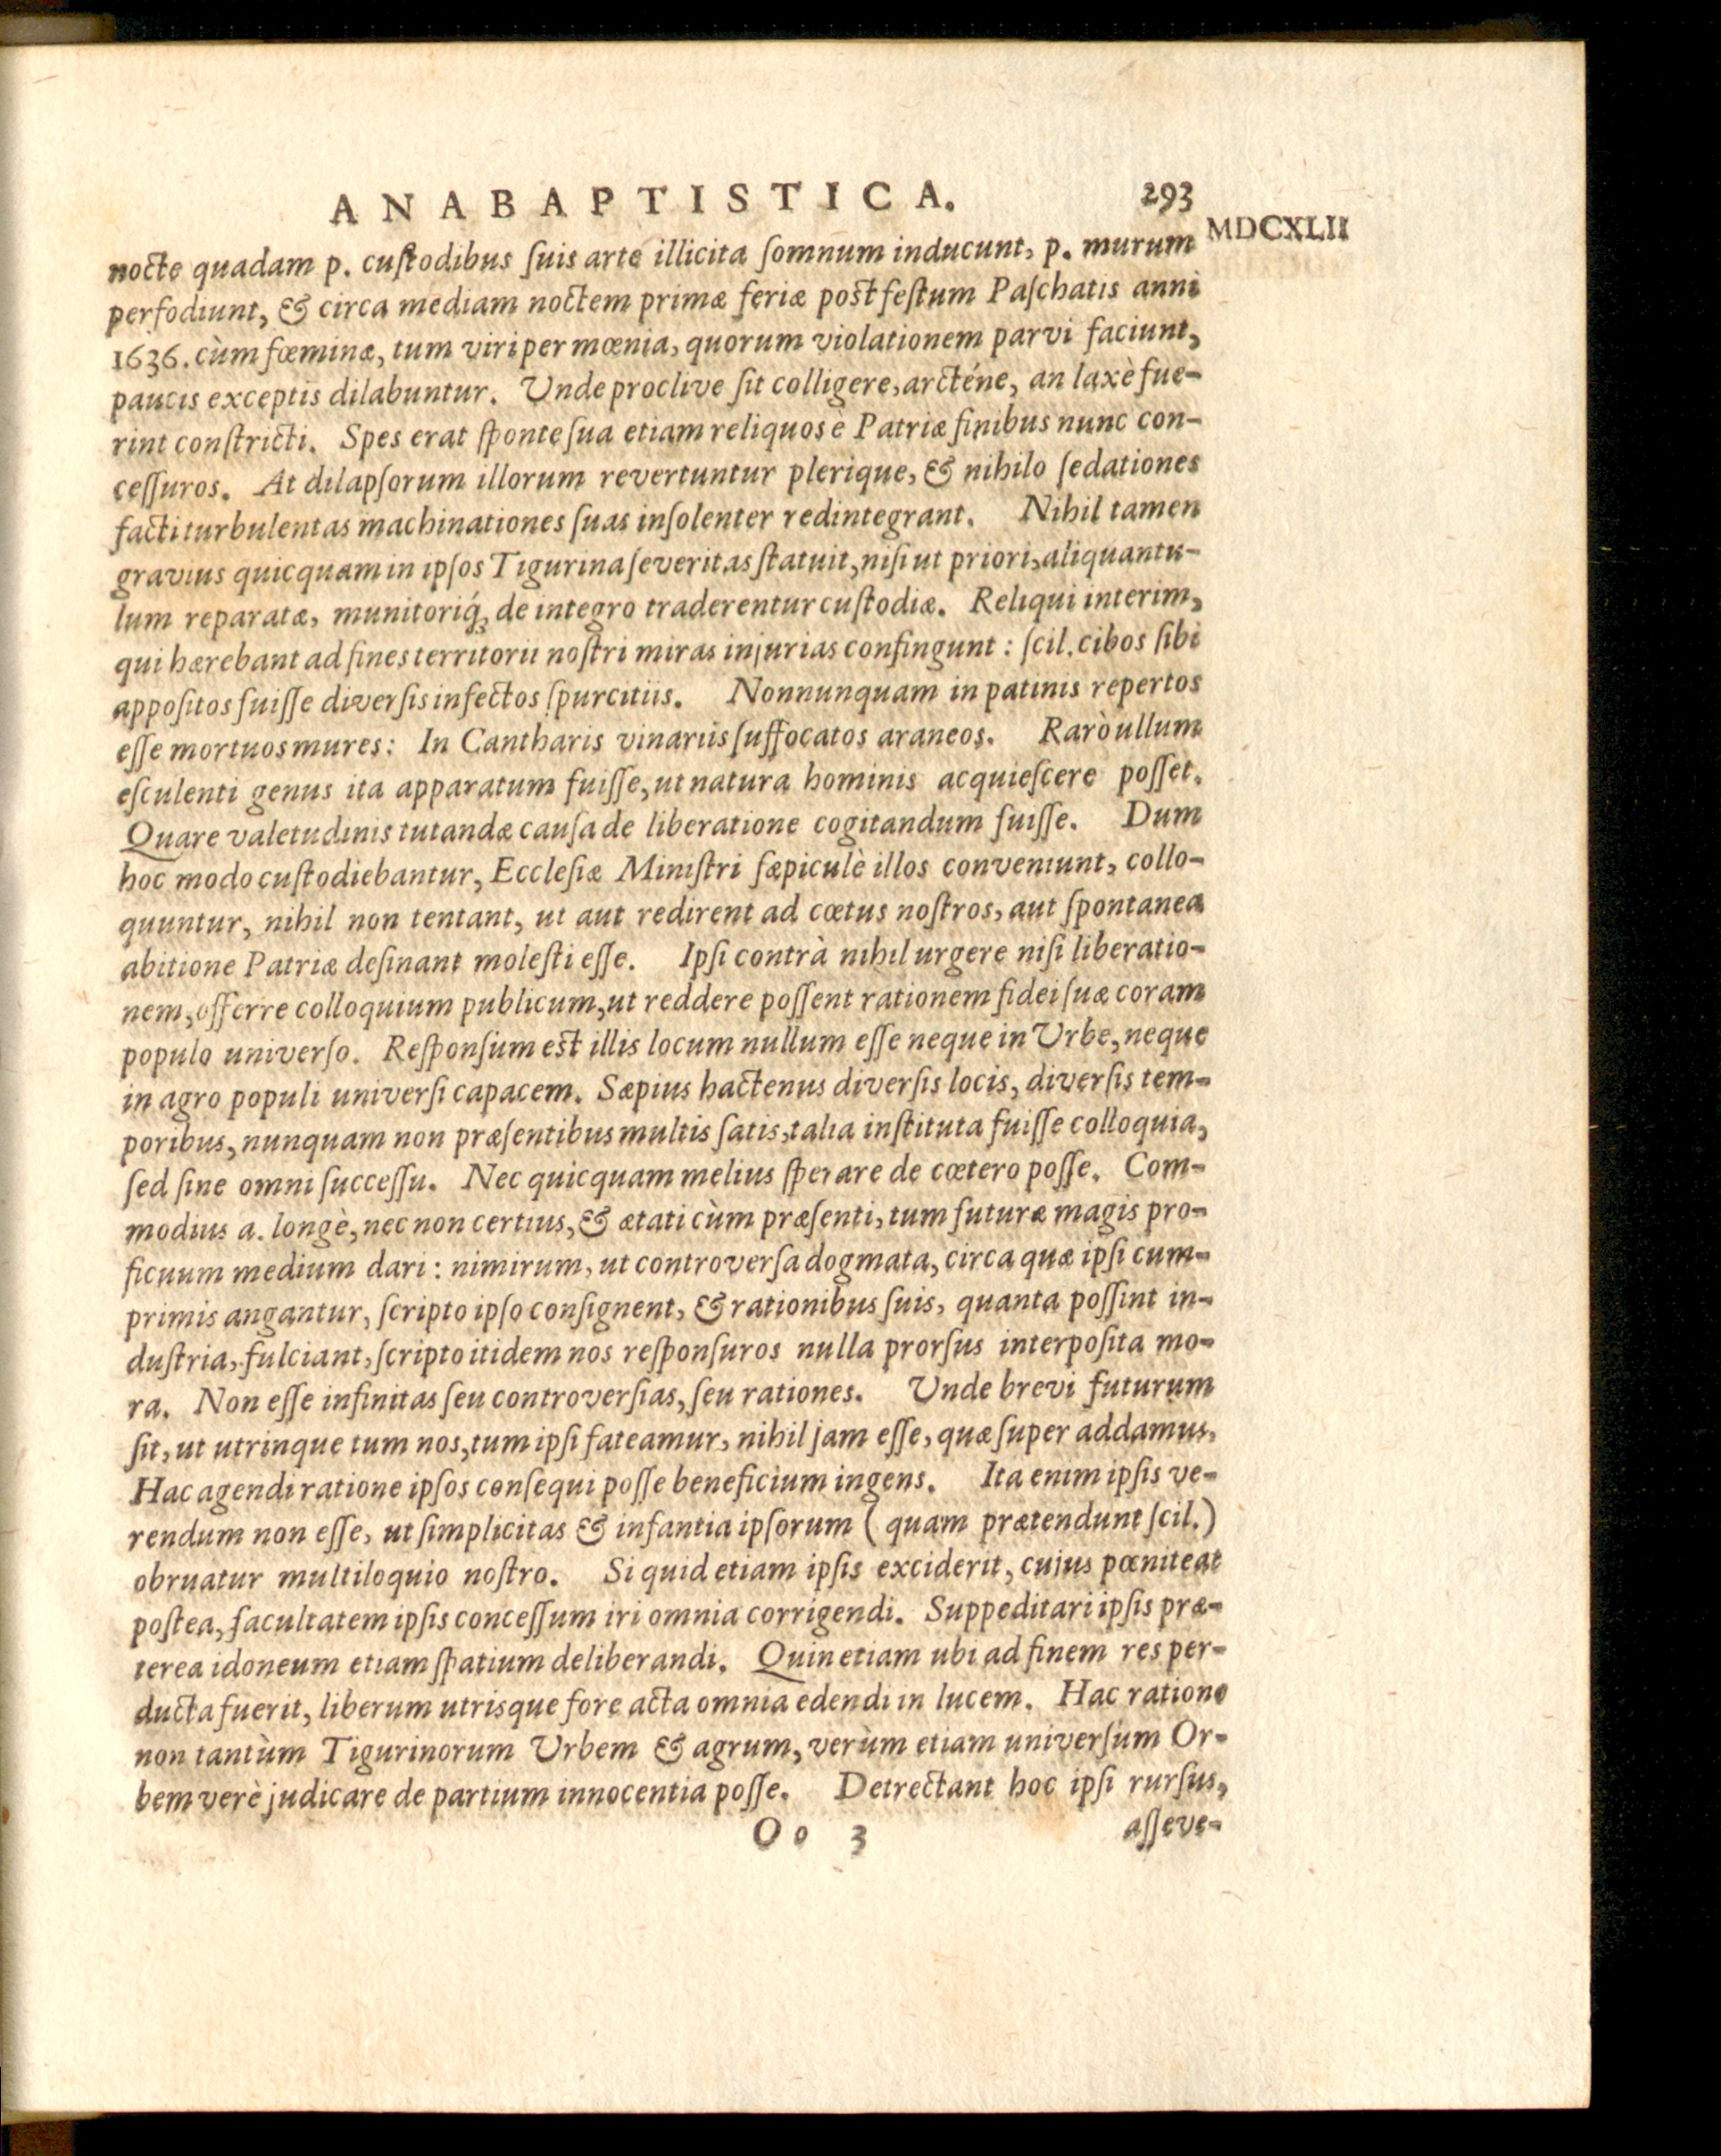 ANABAPTISTICA. 293
MDCXLII
nocte quadam p. cuſtodibus ſuis arte illicita ſomnum inducunt, p. murum
perfodiunt, & circa mediam noctem primæ feriæ poſt feſtum Paſchatis anni
1636. cùm fœminæ, tum viri per mœnia, quorum violationem parvi faciunt,
paucis exceptis dilabuntur. Unde proclive ſit colligere, arcténe, an laxè fue-
rint conſtricti. Spes erat ſponte ſua etiam reliquos è Patriæ finibus nunc con-
ceſſuros. At dilapſorum illorum revertuntur plerique, & nihilo ſedationes
facti turbulentas machinationes ſuas inſolenter redintegrant. Nihil tamen
gravius quicquam in ipſos Tigurina ſeveritas ſtatuit, niſi ut priori, aliquantu-
lum reparatæ, munitoriq́; de integro traderentur cuſtodiæ. Reliqui interim,
qui hærebant ad fines territorii noſtri miras injurias confingunt: ſcil. cibos ſibi
appoſitos fuiſſe diverſis infectos ſpurcitiis. Nonnunquam in patinis repertos
eſſe mortuos mures: In Cantharis vinariis ſuffocatos araneos. Rarò ullum
eſculenti genus ita apparatum fuiſſe, ut natura hominis acquieſcere poſſet.
Quare valetudinis tutandæ cauſa de liberatione cogitandum fuiſſe. Dum
hoc modo cuſtodiebantur, Eccleſiæ Miniſtri ſæpiculè illos conveniunt, collo-
quuntur, nihil non tentant, ut aut redirent ad cœtus noſtros, aut ſpontanea
abitione Patriæ deſinant moleſti eſſe. Ipſi contrà nihil urgere niſi liberatio-
nem, offerre colloquium publicum, ut reddere poſſent rationem fidei ſuæ coram
populo univerſo. Reſponſum eſt illis locum nullum eſſe neque in Urbe, neque
in agro populi univerſi capacem. Sæpius hactenus diverſis locis, diverſis tem-
poribus, nunquam non præſentibus multis ſatis, talia inſtituta fuiſſe colloquia,
ſed ſine omni ſucceſſu. Nec quicquam melius ſperare de cœtero poſſe. Com-
modius a. longè, nec non certius, & ætati cùm præſenti, tum futuræ magis pro-
ficuum medium dari: nimirum, ut controverſa dogmata, circa quæ ipſi cum-
primis angantur, ſcripto ipſo conſignent, & rationibus ſuis, quanta poſſint in-
duſtria, fulciant, ſcripto itidem nos reſponſuros nulla prorſus interpoſita mo-
ra. Non eſſe infinitas ſeu controverſias, ſeu rationes. Unde brevi futurum
ſit, ut utrinque tum nos, tum ipſi fateamur, nihil jam eſſe, quæ ſuper addamus.
Hac agendi ratione ipſos conſequi poſſe beneficium ingens. Ita enim ipſis ve-
rendum non eſſe, ut ſimplicitas & infantia ipſorum (quam prætendunt ſcil.)
obruatur multiloquio noſtro. Si quid etiam ipſis exciderit, cujus pœniteat
poſtea, facultatem ipſis conceſſum iri omnia corrigendi. Suppeditari ipſis præ-
terea idoneum etiam ſpatium deliberandi. Quin etiam ubi ad finem res per-
ducta fuerit, liberum utrisque fore acta omnia edendi in lucem. Hac ratione
non tantùm Tigurinorum Urbem & agrum, verùm etiam univerſum Or-
bem verè judicare de partium innocentia poſſe. Detrectant hoc ipſi rurſus,
Oo 3 aſſeve-